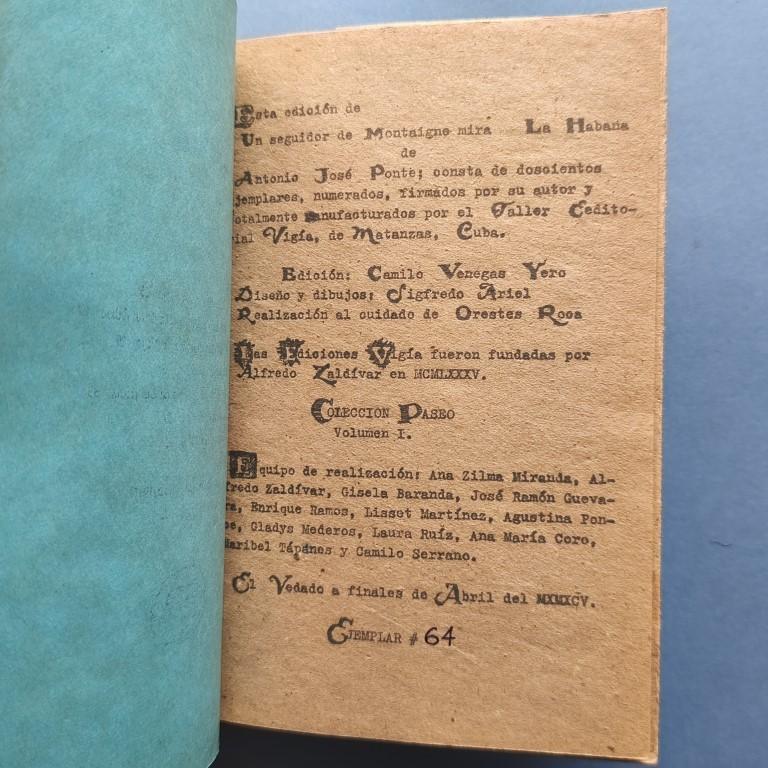 Esta edición de
Un seguidor de Montaigne mira La Habana
de
Antonio José Ponte; consta de doscientos
ejemplares, numerados, firmados por su autor y
totalmente manufacturados por el Taller Cedito-
rial Vigía, de Matanzas, Cuba.
Edición: Camilo Venegas Yero
Diseño y dibujos: Sigfredo Ariel
Realización al cuidado de Orestes Rosa
Las Ediciones Vigía fueron fundadas por
Alfredo Zaldívar en MCMLXXXV.
COLECCION PASEO
Volumen I.
Equipo de realización: Ana Zilma Miranda, Al-
fredo Zaldívar, Gisela Baranda, José Ramón Gueva-
ra, Enrique Ramos, Lisset Martínez, Agustina Pon-
ce, Gladys Mederos, Laura Ruíz, Ana María Coro,
Maribel Tápánes y Camilo Serrano.
El Vedado a finales de Abril del MXMXCV.
EJEMPLAR # 64